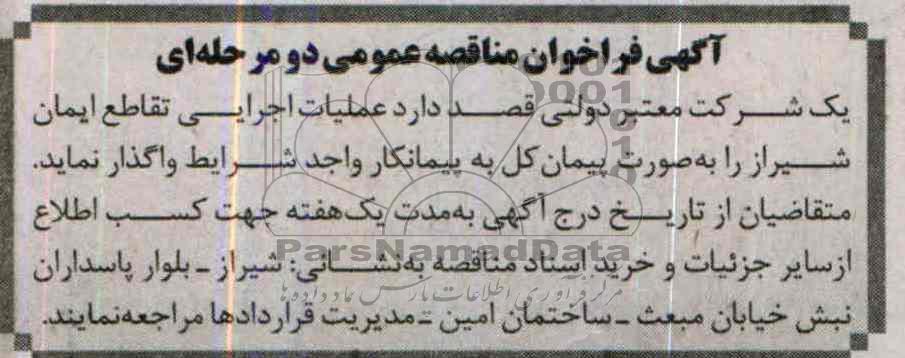 آگهی فراخوان مناقصه عمومی دو مرحله‌ای
یک شرکت معتبر دولتی قصد دارد عملیات اجرایی تقاطع ایمان
شیراز را به‌صورت پیمان کل به پیمانکار واجد شرایط واگذار نماید.
متقاضیان از تاریخ درج آگهی به‌مدت یک‌هفته جهت کسب اطلاع
ازسایر جزئیات و خرید اسناد مناقصه به‌نشانی: شیراز ـ بلوار پاسداران
ParsNamadData
مرکز فرآوری اطلاعات پارس نماد داده‌ها
نبش خیابان مبعث ـ ساختمان امین ـ مدیریت قراردادها مراجعه‌نمایند.